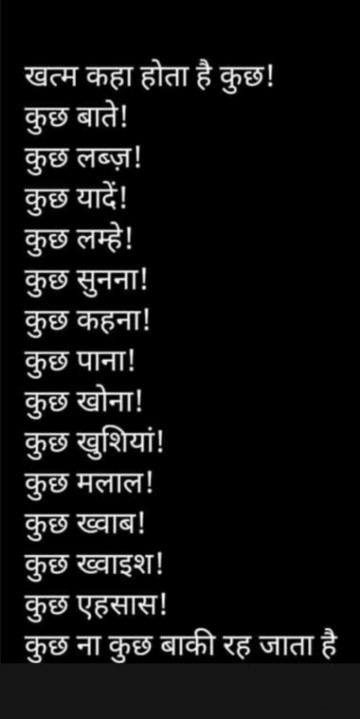 खत्म कहा होता है कुछ!
कुछ बाते!
कुछ लब्ज़!
कुछ यादें!
कुछ लम्हे!
कुछ सुनना!
कुछ कहना!
कुछ पाना!
कुछ खोना!
कुछ खुशियां!
कुछ मलाल!
कुछ ख्वाब!
कुछ ख्वाइश!
कुछ एहसास!
कुछ ना कुछ बाकी रह जाता है